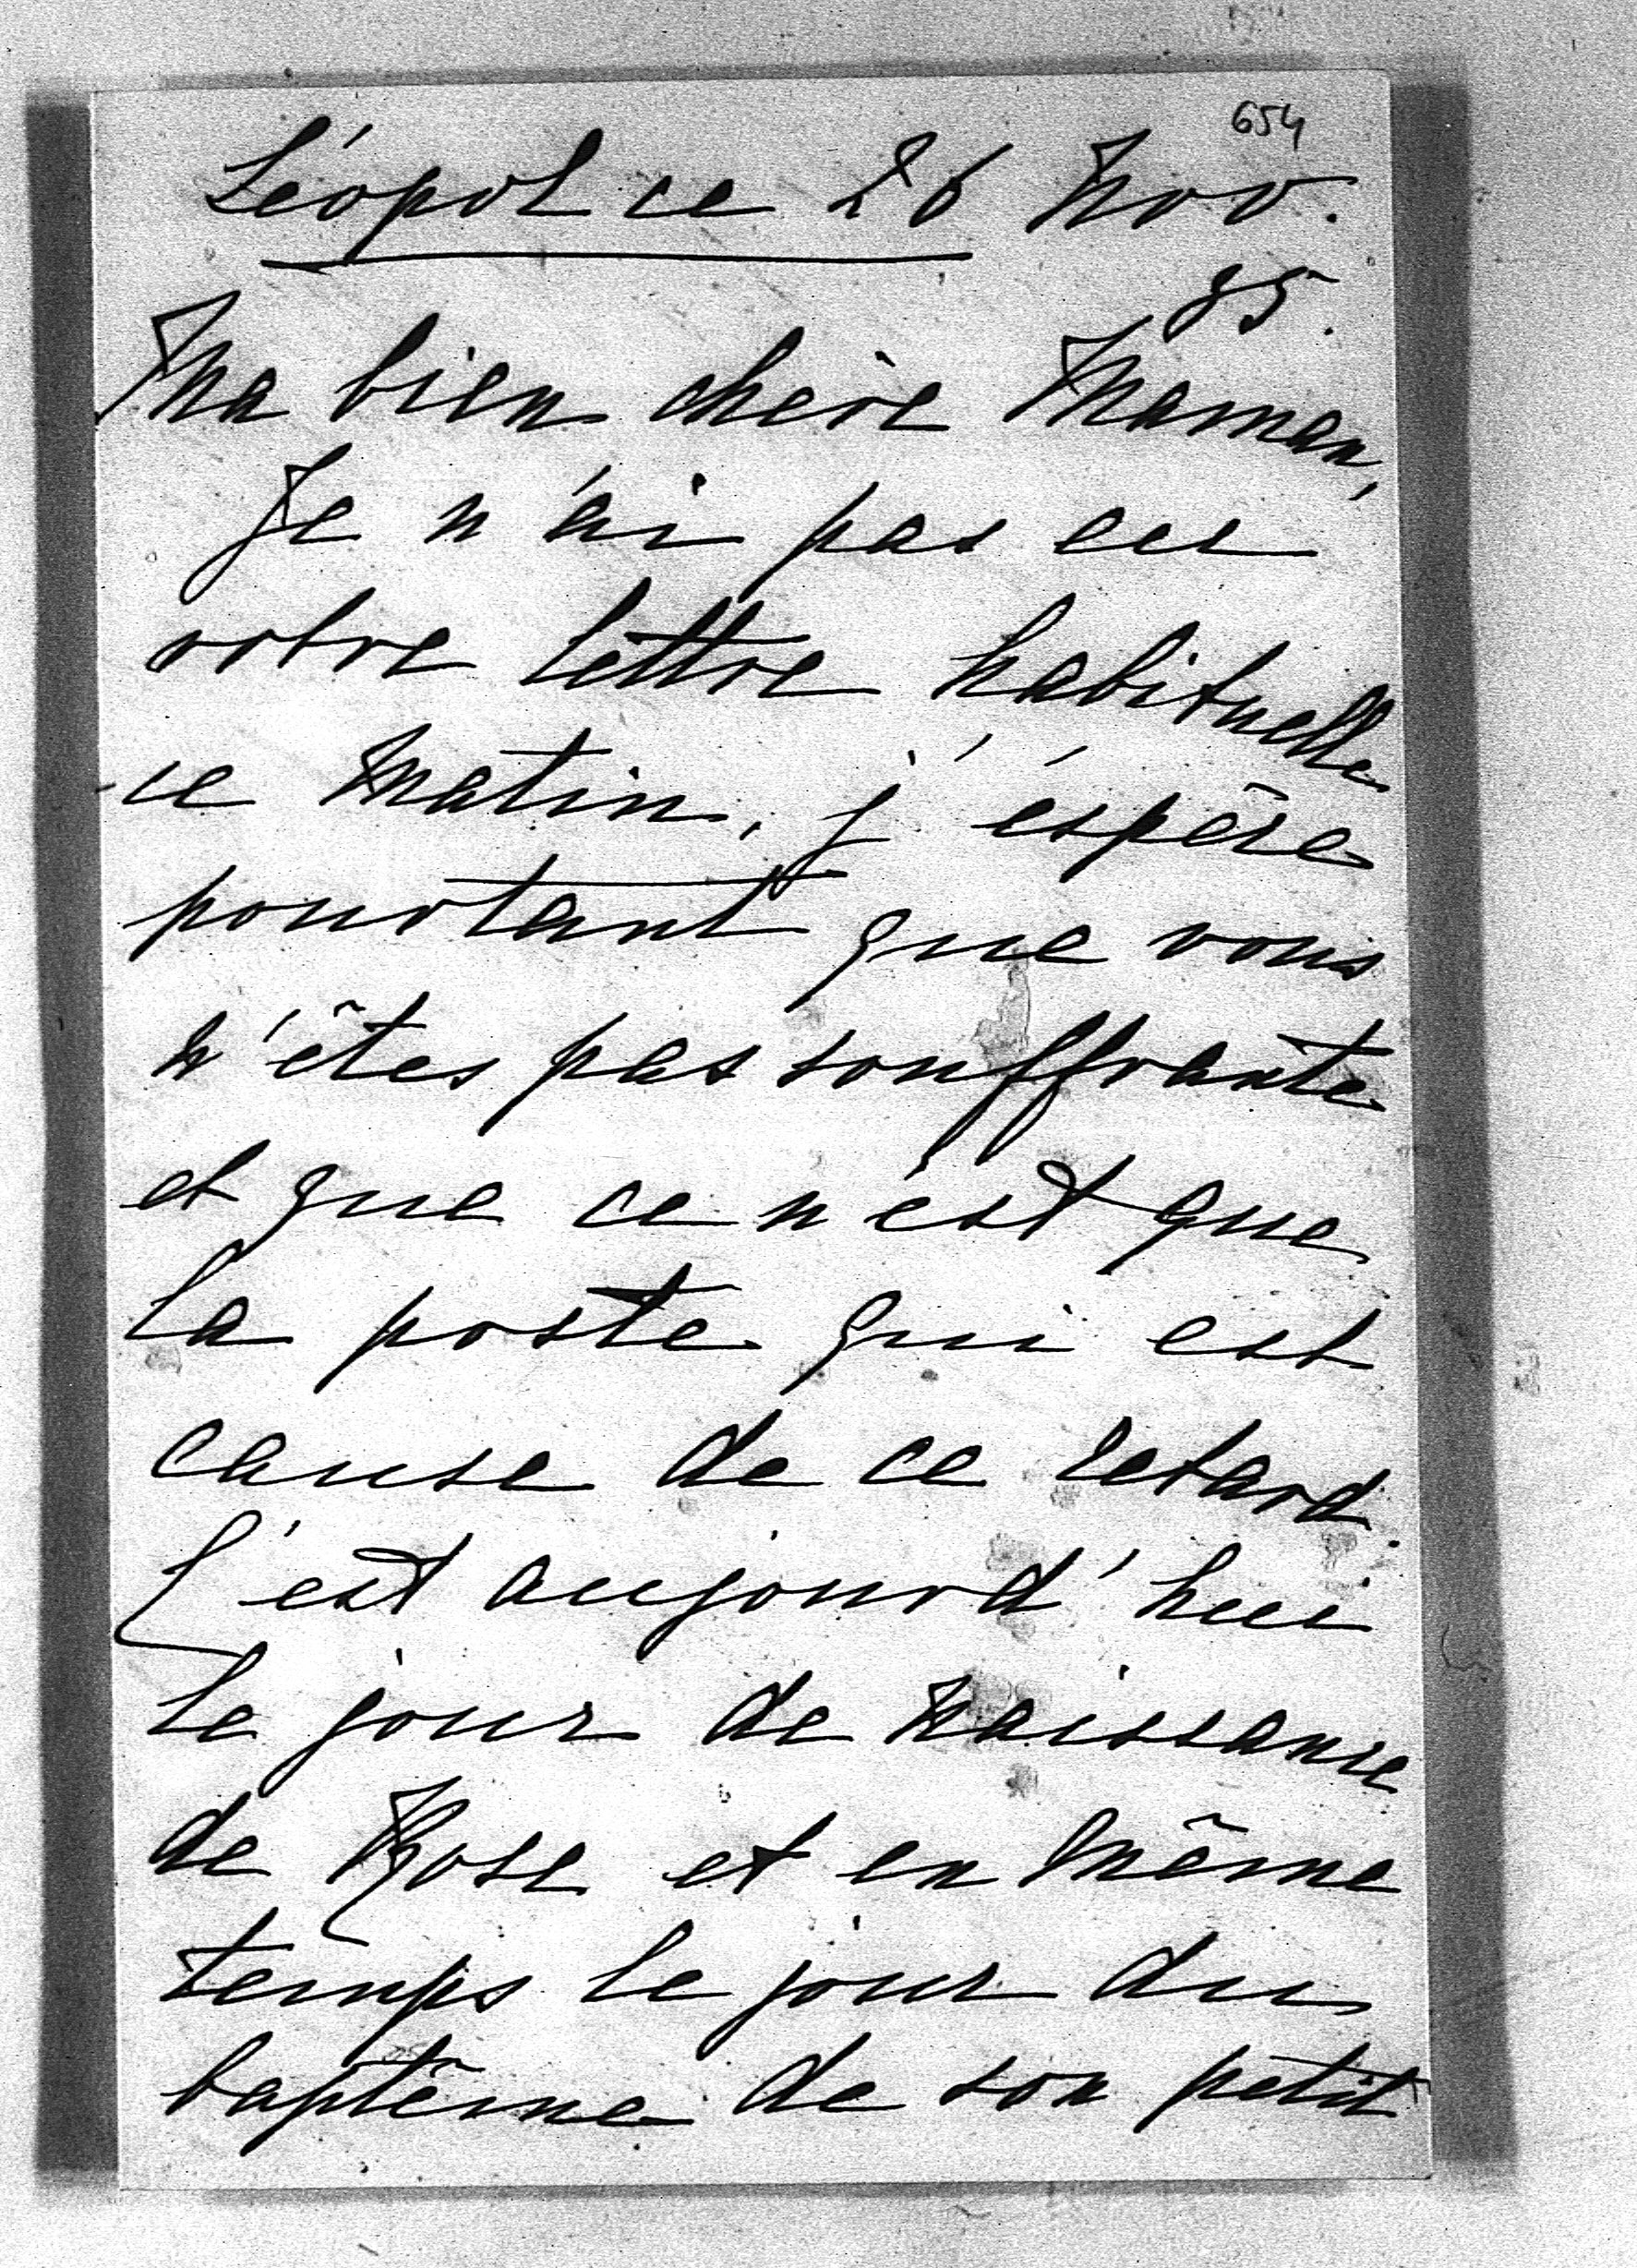 654
Léopol ce 26 Nov.
85.
Ma bien chère Maman,
Je n'ai pas eu
votre lettre habituelle
ce matin, j'éspère
pourtant que vous
n'êtes pas souffrante
et que ce n'est que
la poste qui est
cause de ce retard.
C'est aujourd'hui
le jour de naissance
de Rose et en même
temps le jour du
baptême de son petit